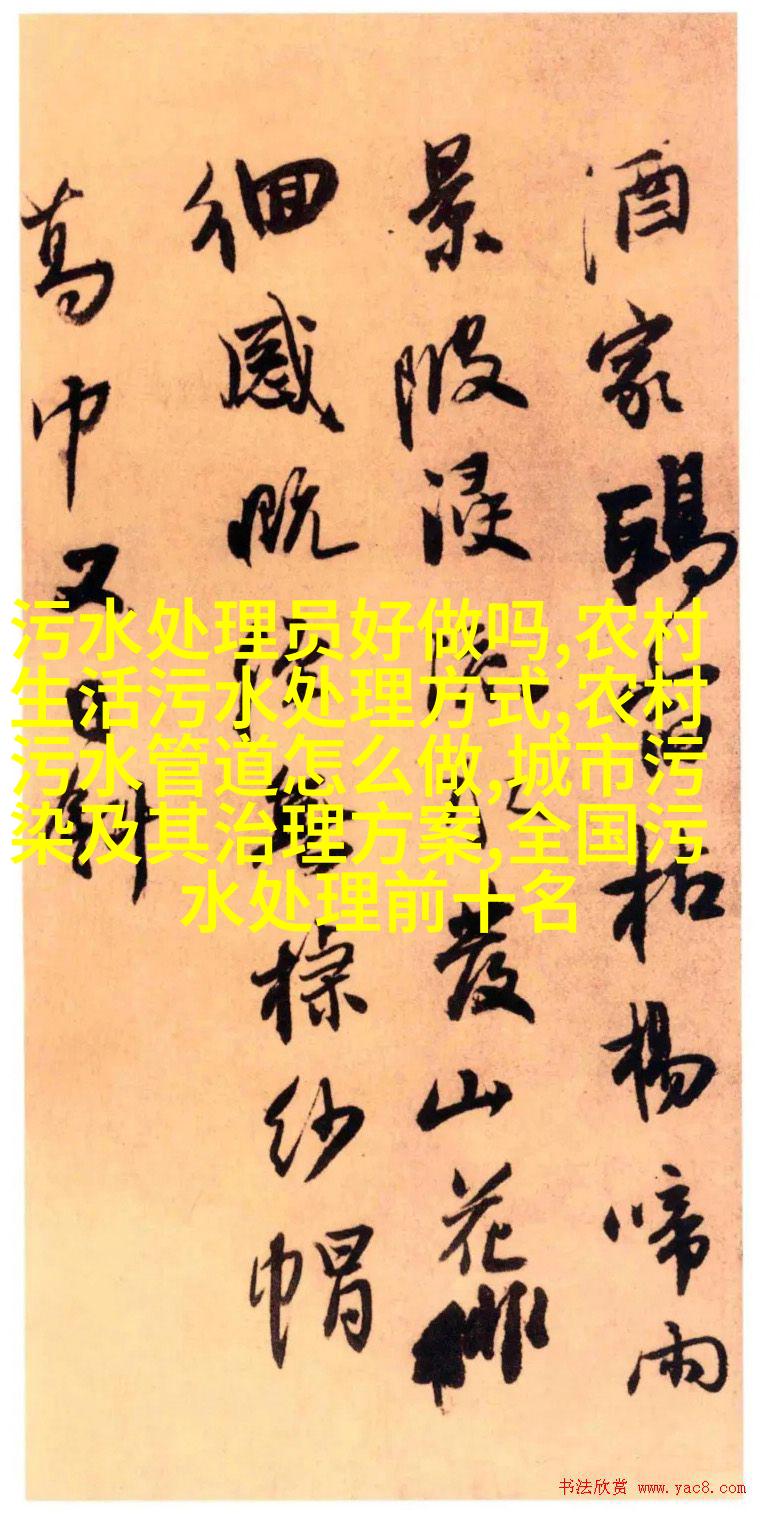 酒家鵶舅柘楊啼雨
景陂浸
發山花
徊感慨
標紗帽
葛巾又日斜
污水处理员好做吗,农村
生活污水处理方式,农村
污水管道怎么做,城市污
染及其治理方案,全国污
水处理前十名
书法欣赏 www.yac8.com